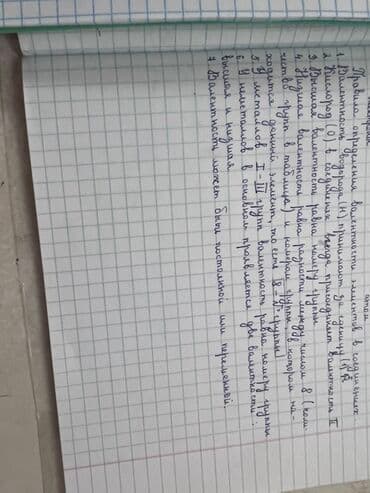 Правила определения валентности элементов в соединениях
1. Валентность водорода (H) принимают за единицу (I)
2. Кислород (O) в соединениях всегда проявляет валентность II
3. Высшая валентность равна номеру группы
4. Низшая валентность равна разности между числом 8 (коли-
чество групп в таблице) и номером группы в котором на-
ходится данный элемент, то есть (8 - № группы)
5. У металлов I - III групп валентность равна номеру группы
6. У неметаллов в основном проявляется две валентности:
высшая и низшая
7. Валентность может быть постоянной или переменной.